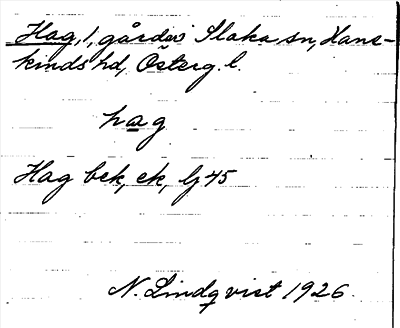 Hag, 1, gård i Slaka sn, Hane-
kinds hd, Österg. l.
hag
Hag bek, ek, lj 45
N. Lindqvist 1926.